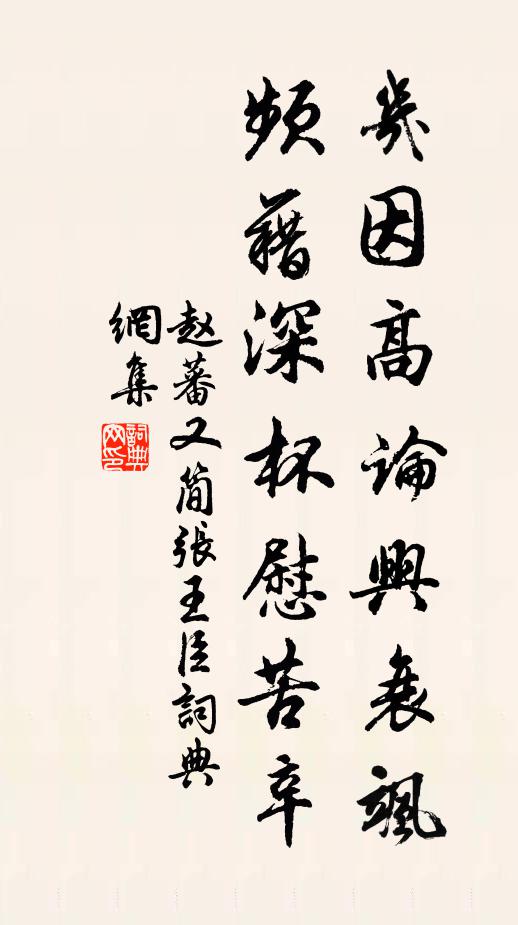 幾因高論興衰颯
頻藉深杯慰苦辛
赵蕃又简張王臣詞典
網集
詞典
网印